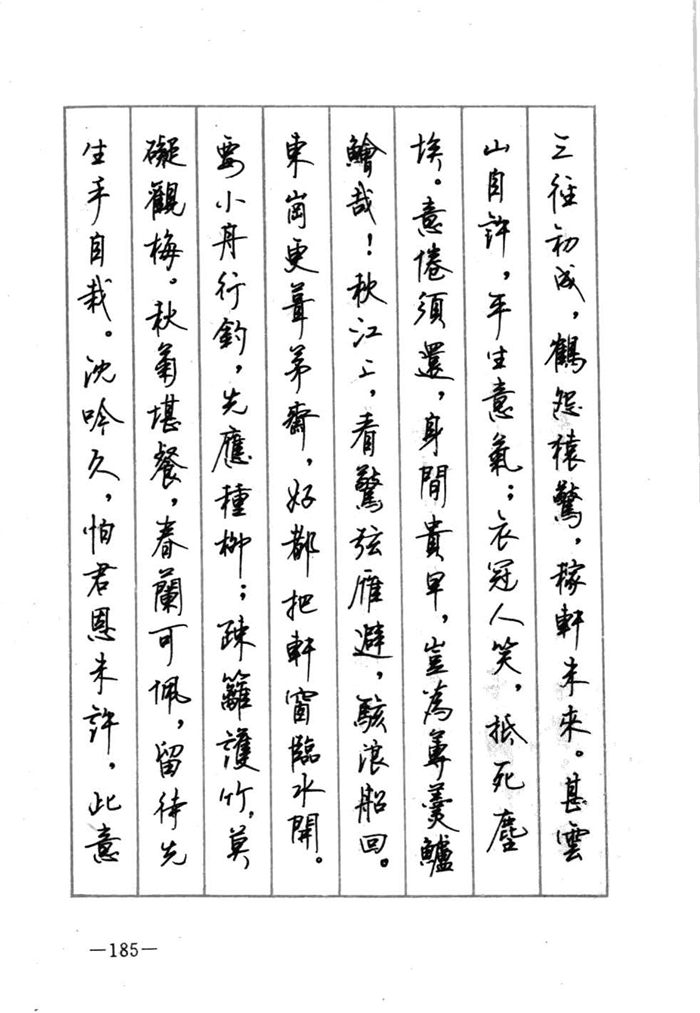 三徑初成，鶴怨猿驚，稼軒未來。甚雲
山自許，平生意氣；衣冠人笑，抵死塵
埃。意倦須還，身閒貴早，豈為蓴羹鱸
鱠哉！秋江上，看驚弦雁避，駭浪船回。
東崗更葺茅齋，好都把軒窗臨水開。
要小舟行釣，先應種柳；疎籬護竹，莫
礙觀梅。秋菊堪餐，春蘭可佩，留待先
生手自栽。沈吟久，怕君恩未許，此意
—185—